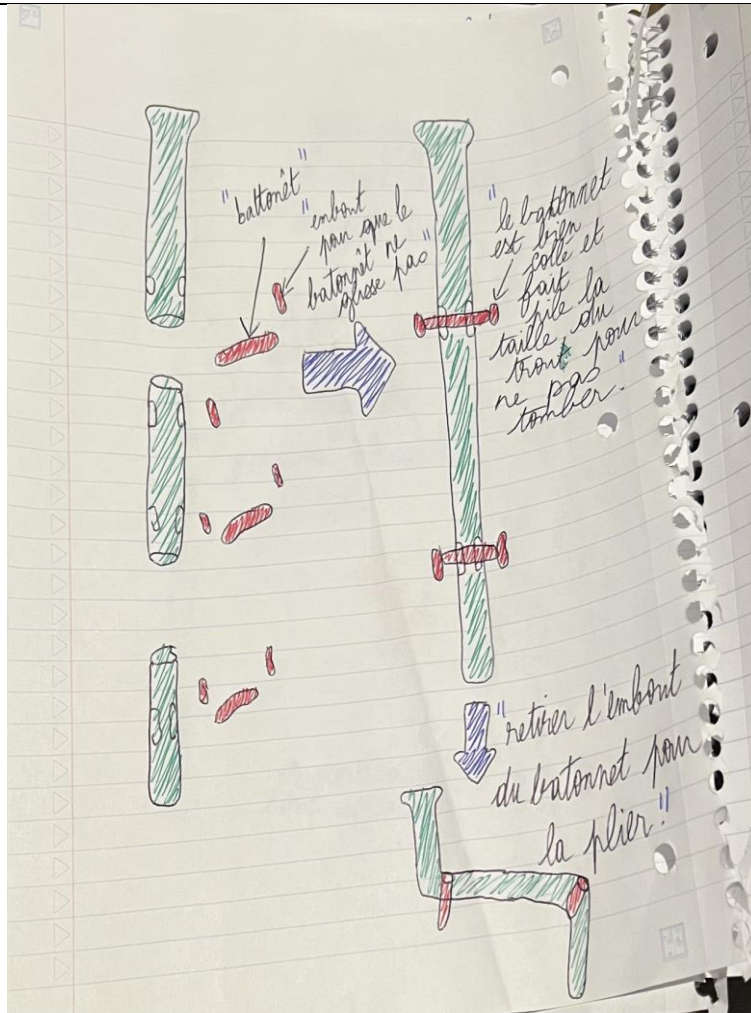 "battonêt"
"embout
pour que le
batonnêt ne
glisse pas"
"le batonnet
est bien
collé et
fait
pile la
taille du
trout pour
ne pas
tomber."
"retirer l'embout
du batonnet pour
la plier."